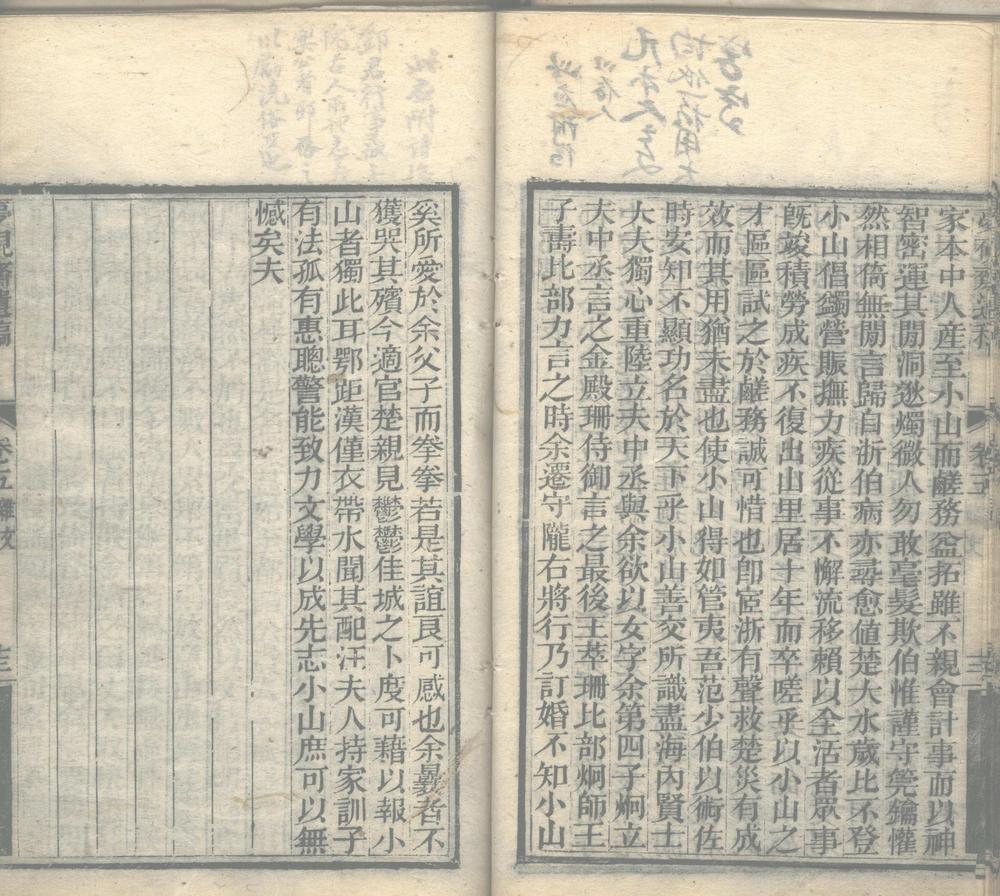 家本中人産至小山而鹺務益拓雖不親會計事而以神
智密運其閒洞邃燭微人勿敢毫髮欺伯惟謹守筦鑰懽
然相倚無閒言歸自浙伯病亦尋愈値楚大水歲比不登
小山倡蠲營賑撫力疾從事不懈流移賴以全活者眾事
旣竣積勞成疾不復出山里居十年而卒嗟乎以小山之
才區區試之於鹺務誠可惜也卽宦浙有聲救楚災有成
效而其用猶未盡也使小山得如管夷吾范少伯以術佐
時安知不顯功名於天下乎小山善交所識盡海內賢士
大夫獨心重陸立夫中丞與余欲以女字余第四子炯立
夫中丞言之金殿珊侍御言之最後王萃珊比部炯師王
子壽比部力言之時余遷守隴右將行乃訂婚不知小山
奚所愛於余父子而拳拳若是其誼良可感也余曩者不
獲哭其殯今適官楚親見鬱鬱佳城之卜度可藉以報小
山者獨此耳鄂距漢僅衣帶水聞其配汪夫人持家訓子
有法孤有惠聰警能致力文學以成先志小山庶可以無
憾矣夫
卷五 雜文